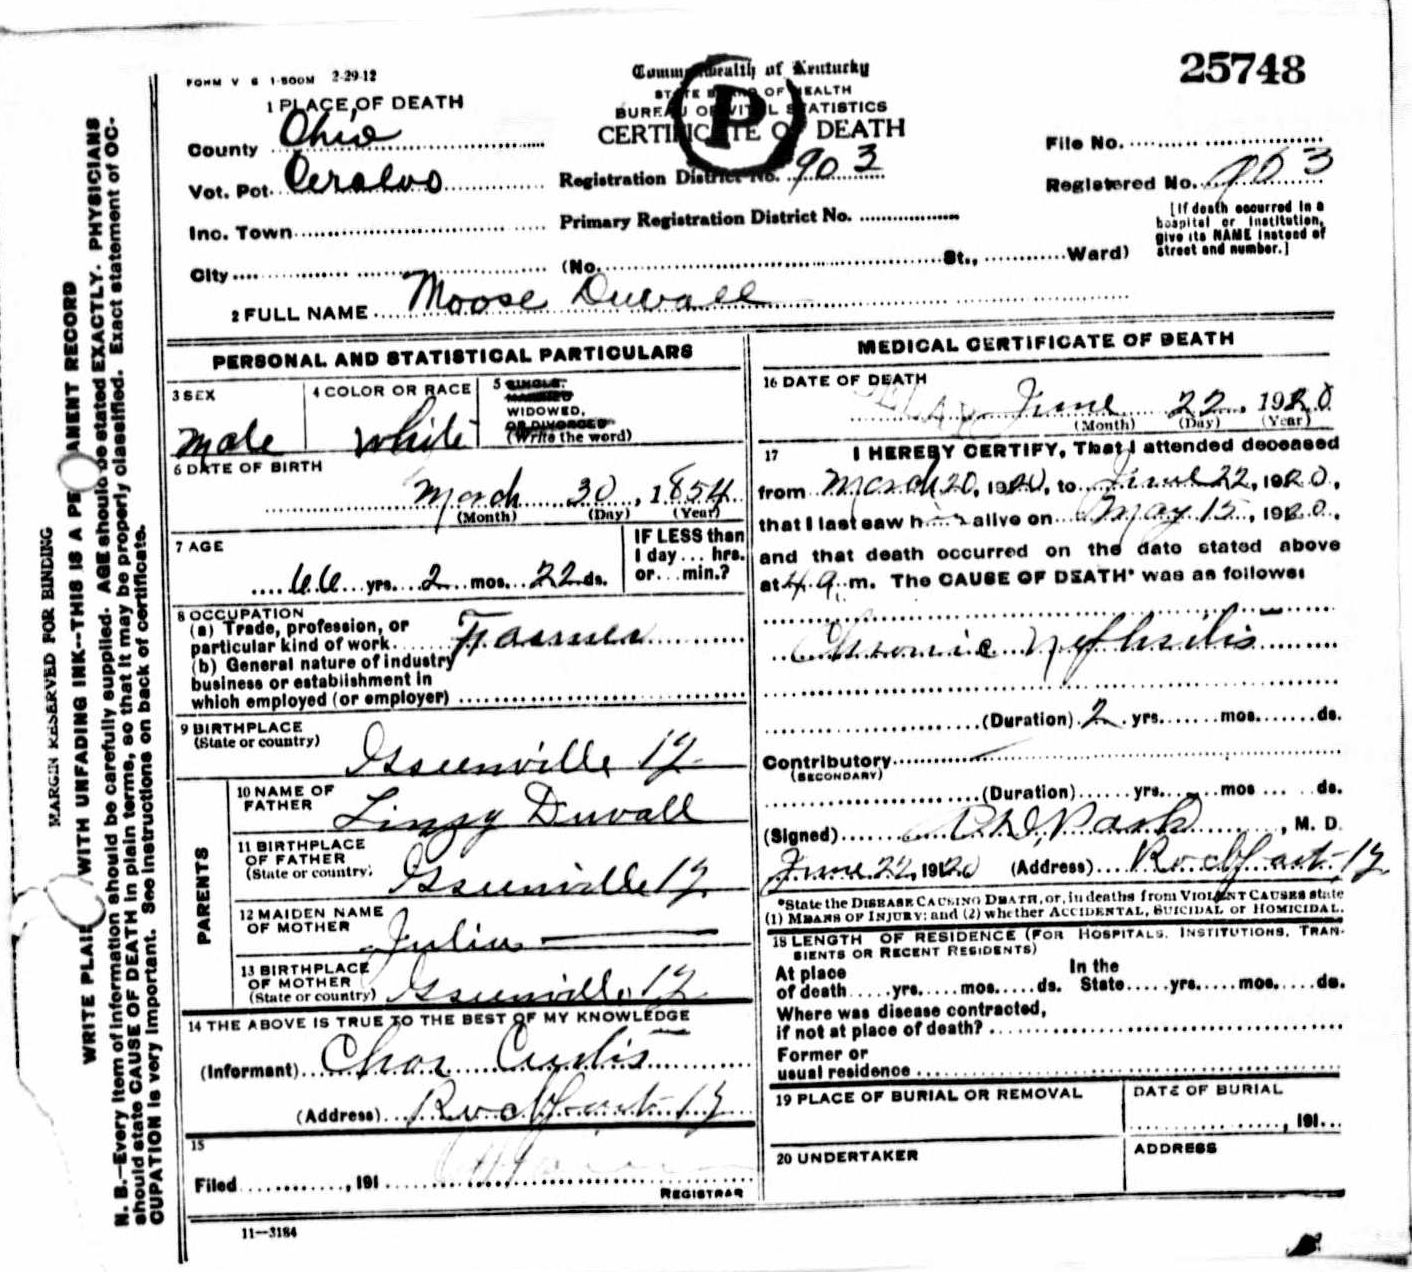 FORM V S 1-500M 2-29-12
25748
Commonwealth of Kentucky
STATE BOARD OF HEALTH
BUREAU OF VITAL STATISTICS
CERTIFICATE OF DEATH
P
1 PLACE OF DEATH
County Ohio
Vot. Pct. Ceralvo
Inc. Town
City
Registration District No. 903
Primary Registration District No.
(No. St., Ward)
File No.
Registered No. 903
[If death occurred in a
hospital or institution,
give its NAME instead of
street and number.]
2 FULL NAME Moose Duvall
PERSONAL AND STATISTICAL PARTICULARS
3 SEX
Male
4 COLOR OR RACE
White
5 SINGLE,
MARRIED
WIDOWED,
OR DIVORCED
(Write the word)
6 DATE OF BIRTH
March 30, 1854
(Month) (Day) (Year)
7 AGE
66 yrs. 2 mos. 22 ds.
IF LESS than
1 day... hrs.
or... min.?
8 OCCUPATION
(a) Trade, profession, or
particular kind of work Farmer
(b) General nature of industry
business or establishment in
which employed (or employer)
9 BIRTHPLACE
(State or country)
Greenville Ky
PARENTS
10 NAME OF
FATHER
Linzy Duvall
11 BIRTHPLACE
OF FATHER
(State or country)
Greenville Ky
12 MAIDEN NAME
OF MOTHER
Julia
13 BIRTHPLACE
OF MOTHER
(State or country)
Greenville, Ky
14 THE ABOVE IS TRUE TO THE BEST OF MY KNOWLEDGE
(Informant) Chas Curtis
(Address) Rockport Ky
15
Filed , 191
REGISTRAR
11-3184
MEDICAL CERTIFICATE OF DEATH
16 DATE OF DEATH
June 22, 1920
(Month) (Day) (Year)
17 I HEREBY CERTIFY, That I attended deceased
from March 20, 1920, to June 22, 1920,
that I last saw him alive on May 15, 1920,
and that death occurred on the date stated above
at 4 a. m. The CAUSE OF DEATH* was as follows:
Chronic Nefhritis
(Duration) 2 yrs. mos. ds.
Contributory
(SECONDARY)
(Duration) yrs. mos ds.
(Signed) , M. D.
June 22, 1920 (Address) Rockport Ky
*State the DISEASE CAUSING DEATH, or, in deaths from VIOLENT CAUSES state
(1) MEANS OF INJURY; and (2) whether ACCIDENTAL, SUICIDAL or HOMICIDAL.
18 LENGTH OF RESIDENCE (FOR HOSPITALS, INSTITUTIONS, TRAN-
SIENTS OR RECENT RESIDENTS)
At place In the
of death yrs. mos. ds. State yrs. mos. ds.
Where was disease contracted,
if not at place of death?
Former or
usual residence
19 PLACE OF BURIAL OR REMOVAL
DATE OF BURIAL
, 191
20 UNDERTAKER
ADDRESS
MARGIN RESERVED FOR BINDING
WRITE PLAIN WITH UNFADING INK--THIS IS A PE ANENT RECORD
N. B.--Every item of information should be carefully supplied. AGE should be stated EXACTLY. PHYSICIANS
should state CAUSE OF DEATH in plain terms, so that it may be properly classified. Exact statement of OC-
CUPATION is very important. See instructions on back of certificate.